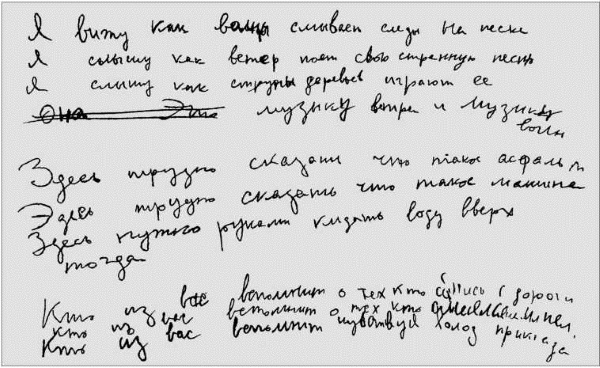 Я вижу как волны смывает следы на песке
Я слышу как ветер поет свою странную песнь
Я слышу как струны деревьев играют ее
музыку ветра и музыку
волн
Здесь трудно сказать что такое асфальт
Здесь трудно сказать что такое машина
Здесь нужно руками кидать воду вверх
тогда
Кто из вас вспомнит о тех кто сбились с дороги
Кто из вас вспомнит о тех кто смеялись и пел
Кто из вас вспомнит чувствуя холод приклада